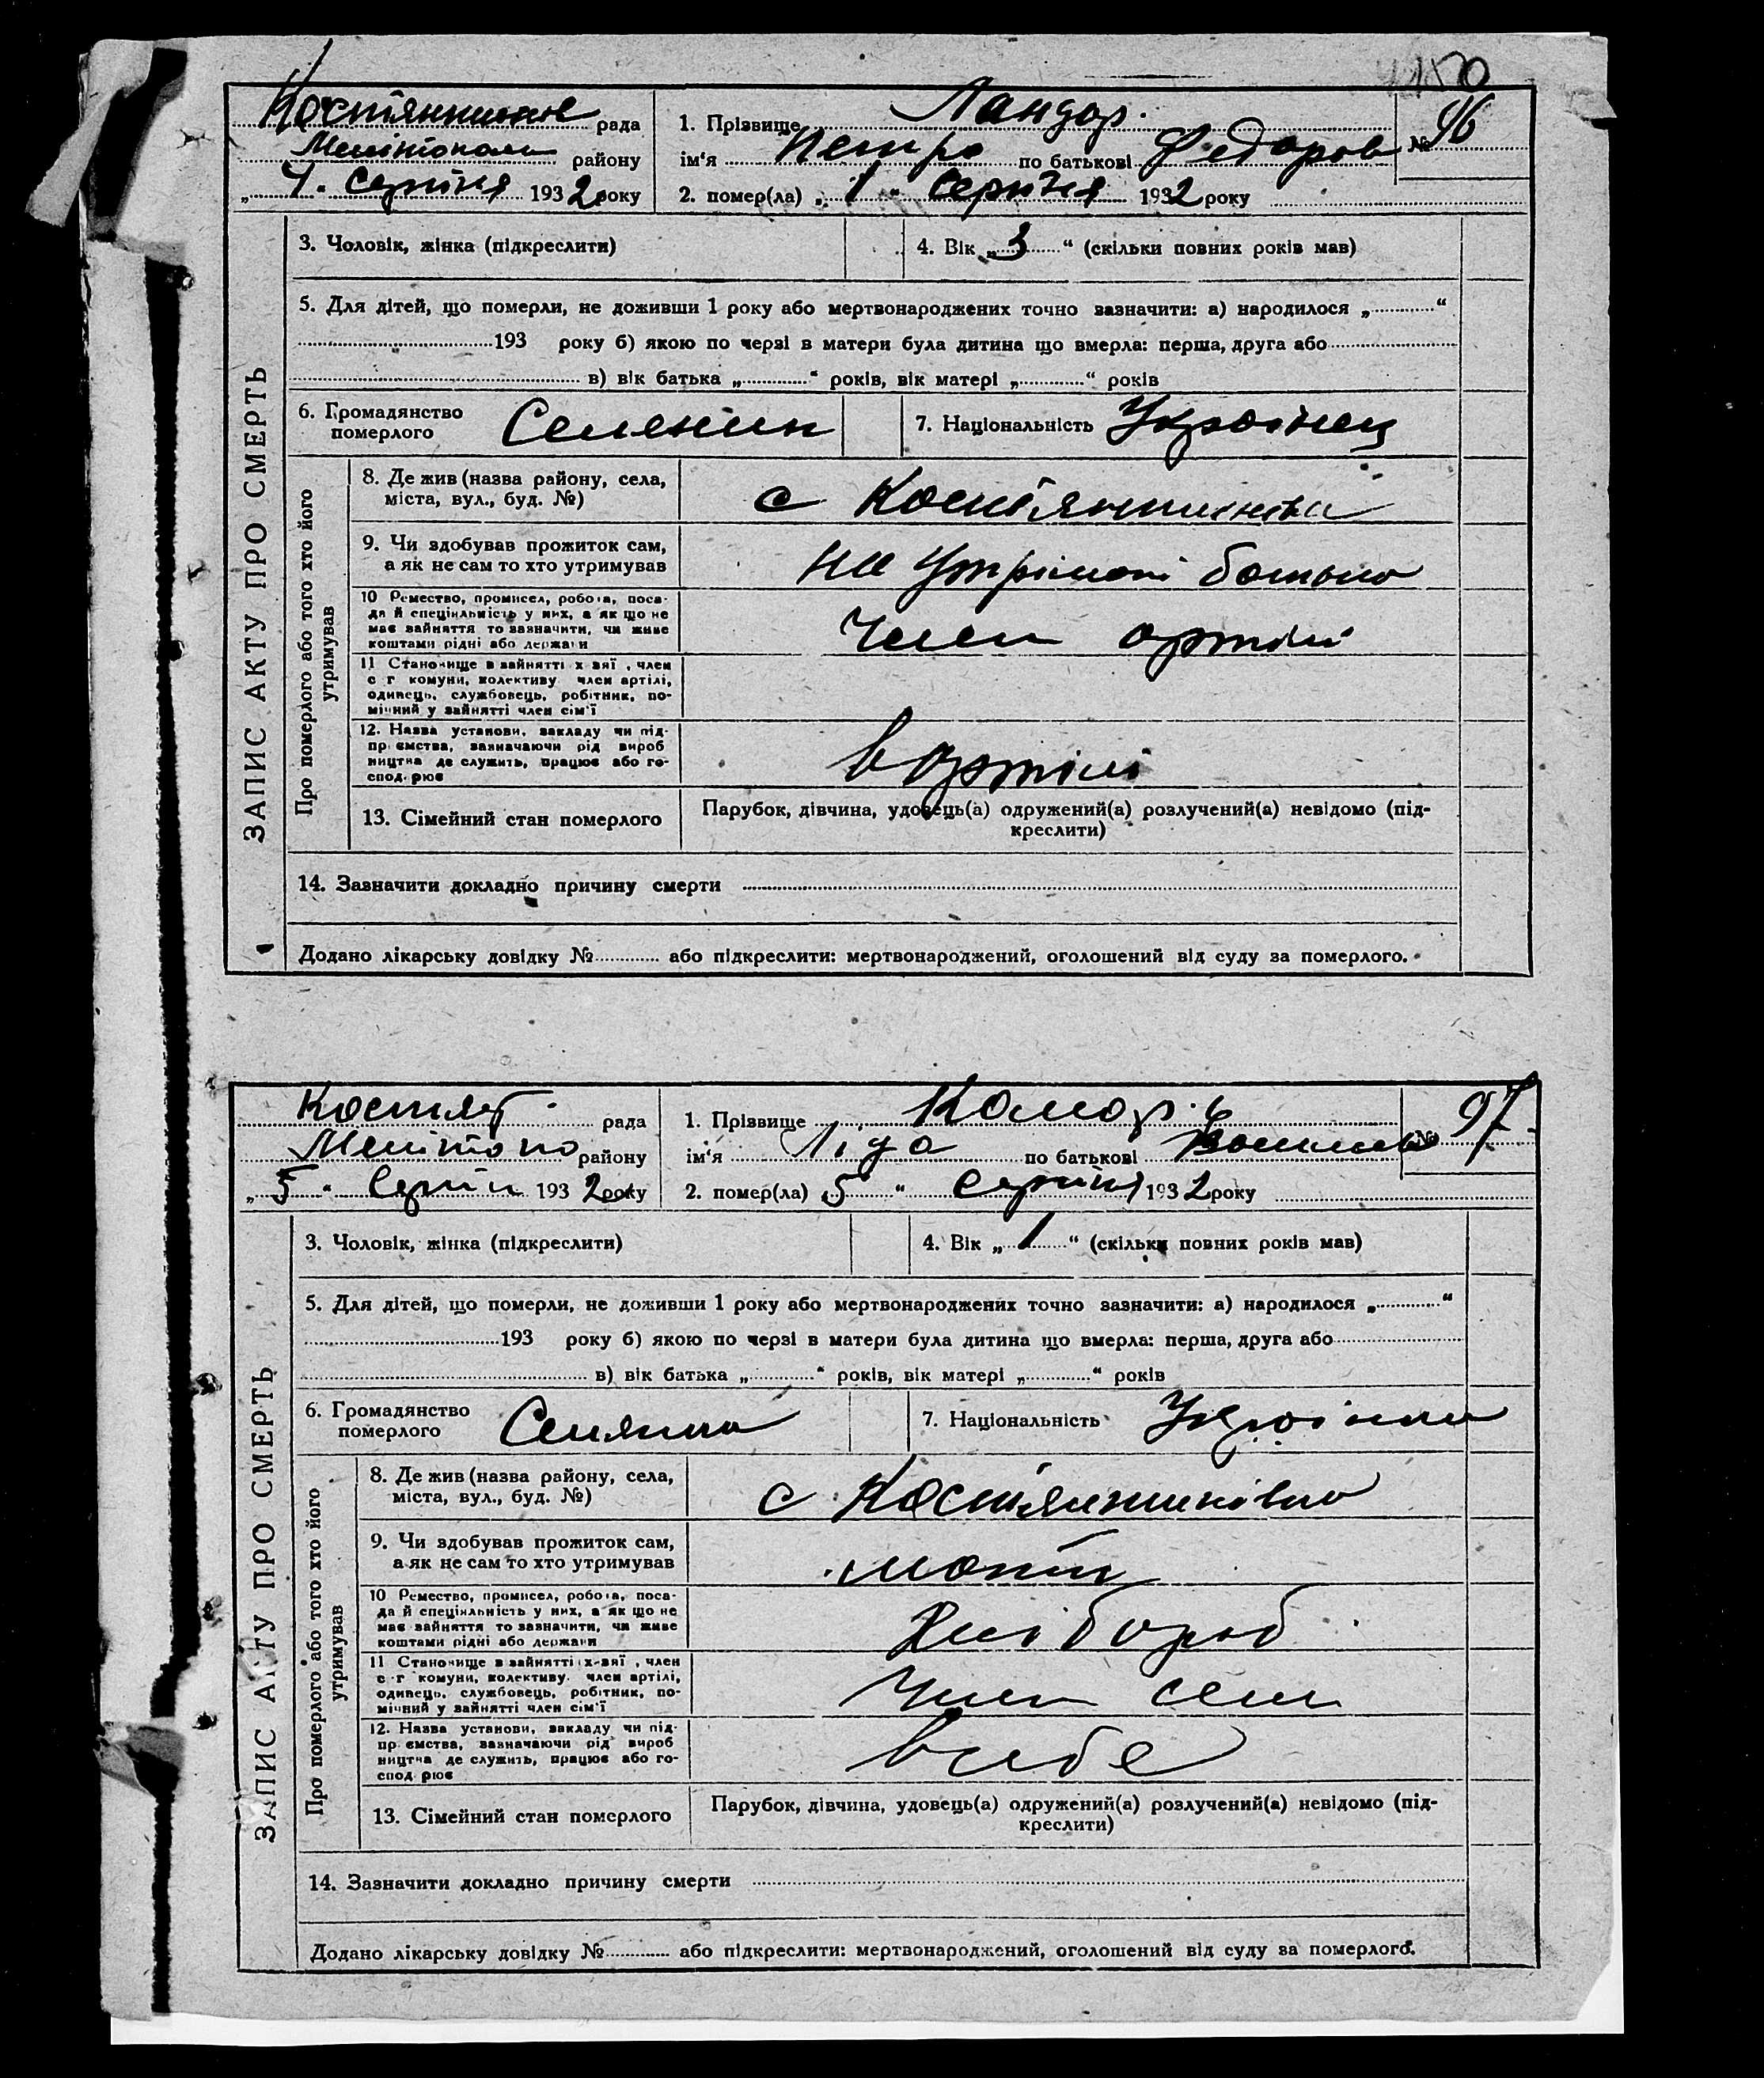 Костянтинов рада
1. Прізвище Ландар.
№ 96
Мелітополь району
ім'я Петро по батькові Федоров
„4. серпня 1932 року
2. помер(ла) „1" серпня 1932 року
ЗАПИС АКТУ ПРО СМЕРТЬ
3. Чоловік, жінка (підкреслити)
4. Вік „3" (скільки повних років мав)
5. Для дітей, що померли, не доживши 1 року або мертвонароджених точно зазначити: а) народилося „ "
193 року б) якою по черзі в матери була дитина що вмерла: перша, друга або
в) вік батька „ " років, вік матері „ " років
6. Громадянство померлого Селенин
7. Національність Українец
Про померлого або того хто його утримував
8. Де жив (назва району, села,
міста, вул., буд. №)
с Костянтинівка
9. Чи здобував прожиток сам,
а як не сам то хто утримував
на утрімані батька
10 Ремество, промисел, робота, поса-
да й спеціяльність у них, а як що не
має зайняття то зазначити, чи живе
коштами рідні або держави
член артілі
11 Становище в зайнятті х-вяї, член
с г комуни, колективу член артілі,
одинець, службовець, робітник, по-
мічний у зайнятті член сім'ї
12. Назва установи, закладу чи під-
приємства, зазначаючи рід вироб
ництва де служить, працює або го-
сподарює
в артілі
13. Сімейний стан померлого
Парубок, дівчина, удовець(а) одружений(а) розлучений(а) невідомо (під-
креслити)
14. Зазначити докладно причину смерти
Додано лікарську довідку № або підкреслити: мертвонароджений, оголошений від суду за померлого.
Костят. рада
1. Прізвище Комар.
№ 97
Мелітопо району
ім'я Ліда по батькові
„5" Серпн 1932 року
2. помер(ла) „5" серпня 1932 року
ЗАПИС АКТУ ПРО СМЕРТЬ
3. Чоловік, жінка (підкреслити)
4. Вік „1" (скільки повних років мав)
5. Для дітей, що померли, не доживши 1 року або мертвонароджених точно зазначити: а) народилося „ "
193 року б) якою по черзі в матери була дитина що вмерла: перша, друга або
в) вік батька „ " років, вік матері „ " років
6. Громадянство померлого Селянка
7. Національність Українка
Про померлого або того хто його утримував
8. Де жив (назва району, села,
міста, вул., буд. №)
с Костянтинівка
9. Чи здобував прожиток сам,
а як не сам то хто утримував
10 Ремество, промисел, робота, поса-
да й спеціяльність у них, а як що не
має зайняття то зазначити, чи живе
коштами рідні або держави
Хлібороб
11 Становище в зайнятті х-вяї, член
с г комуни, колективу член артілі,
одинець, службовець, робітник, по-
мічний у зайнятті член сім'ї
член сем
12. Назва установи, закладу чи під-
приємства, зазначаючи рід вироб
ництва де служить, працює або го-
сподарює
в себе
13. Сімейний стан померлого
Парубок, дівчина, удовець(а) одружений(а) розлучений(а) невідомо (під-
креслити)
14. Зазначити докладно причину смерти
Додано лікарську довідку № або підкреслити: мертвонароджений, оголошений від суду за померлого.